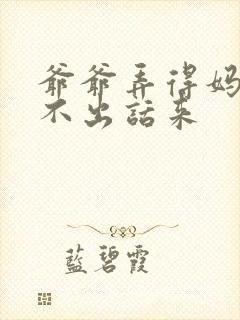 爺爺弄得妈
不出話来
藍碧霞